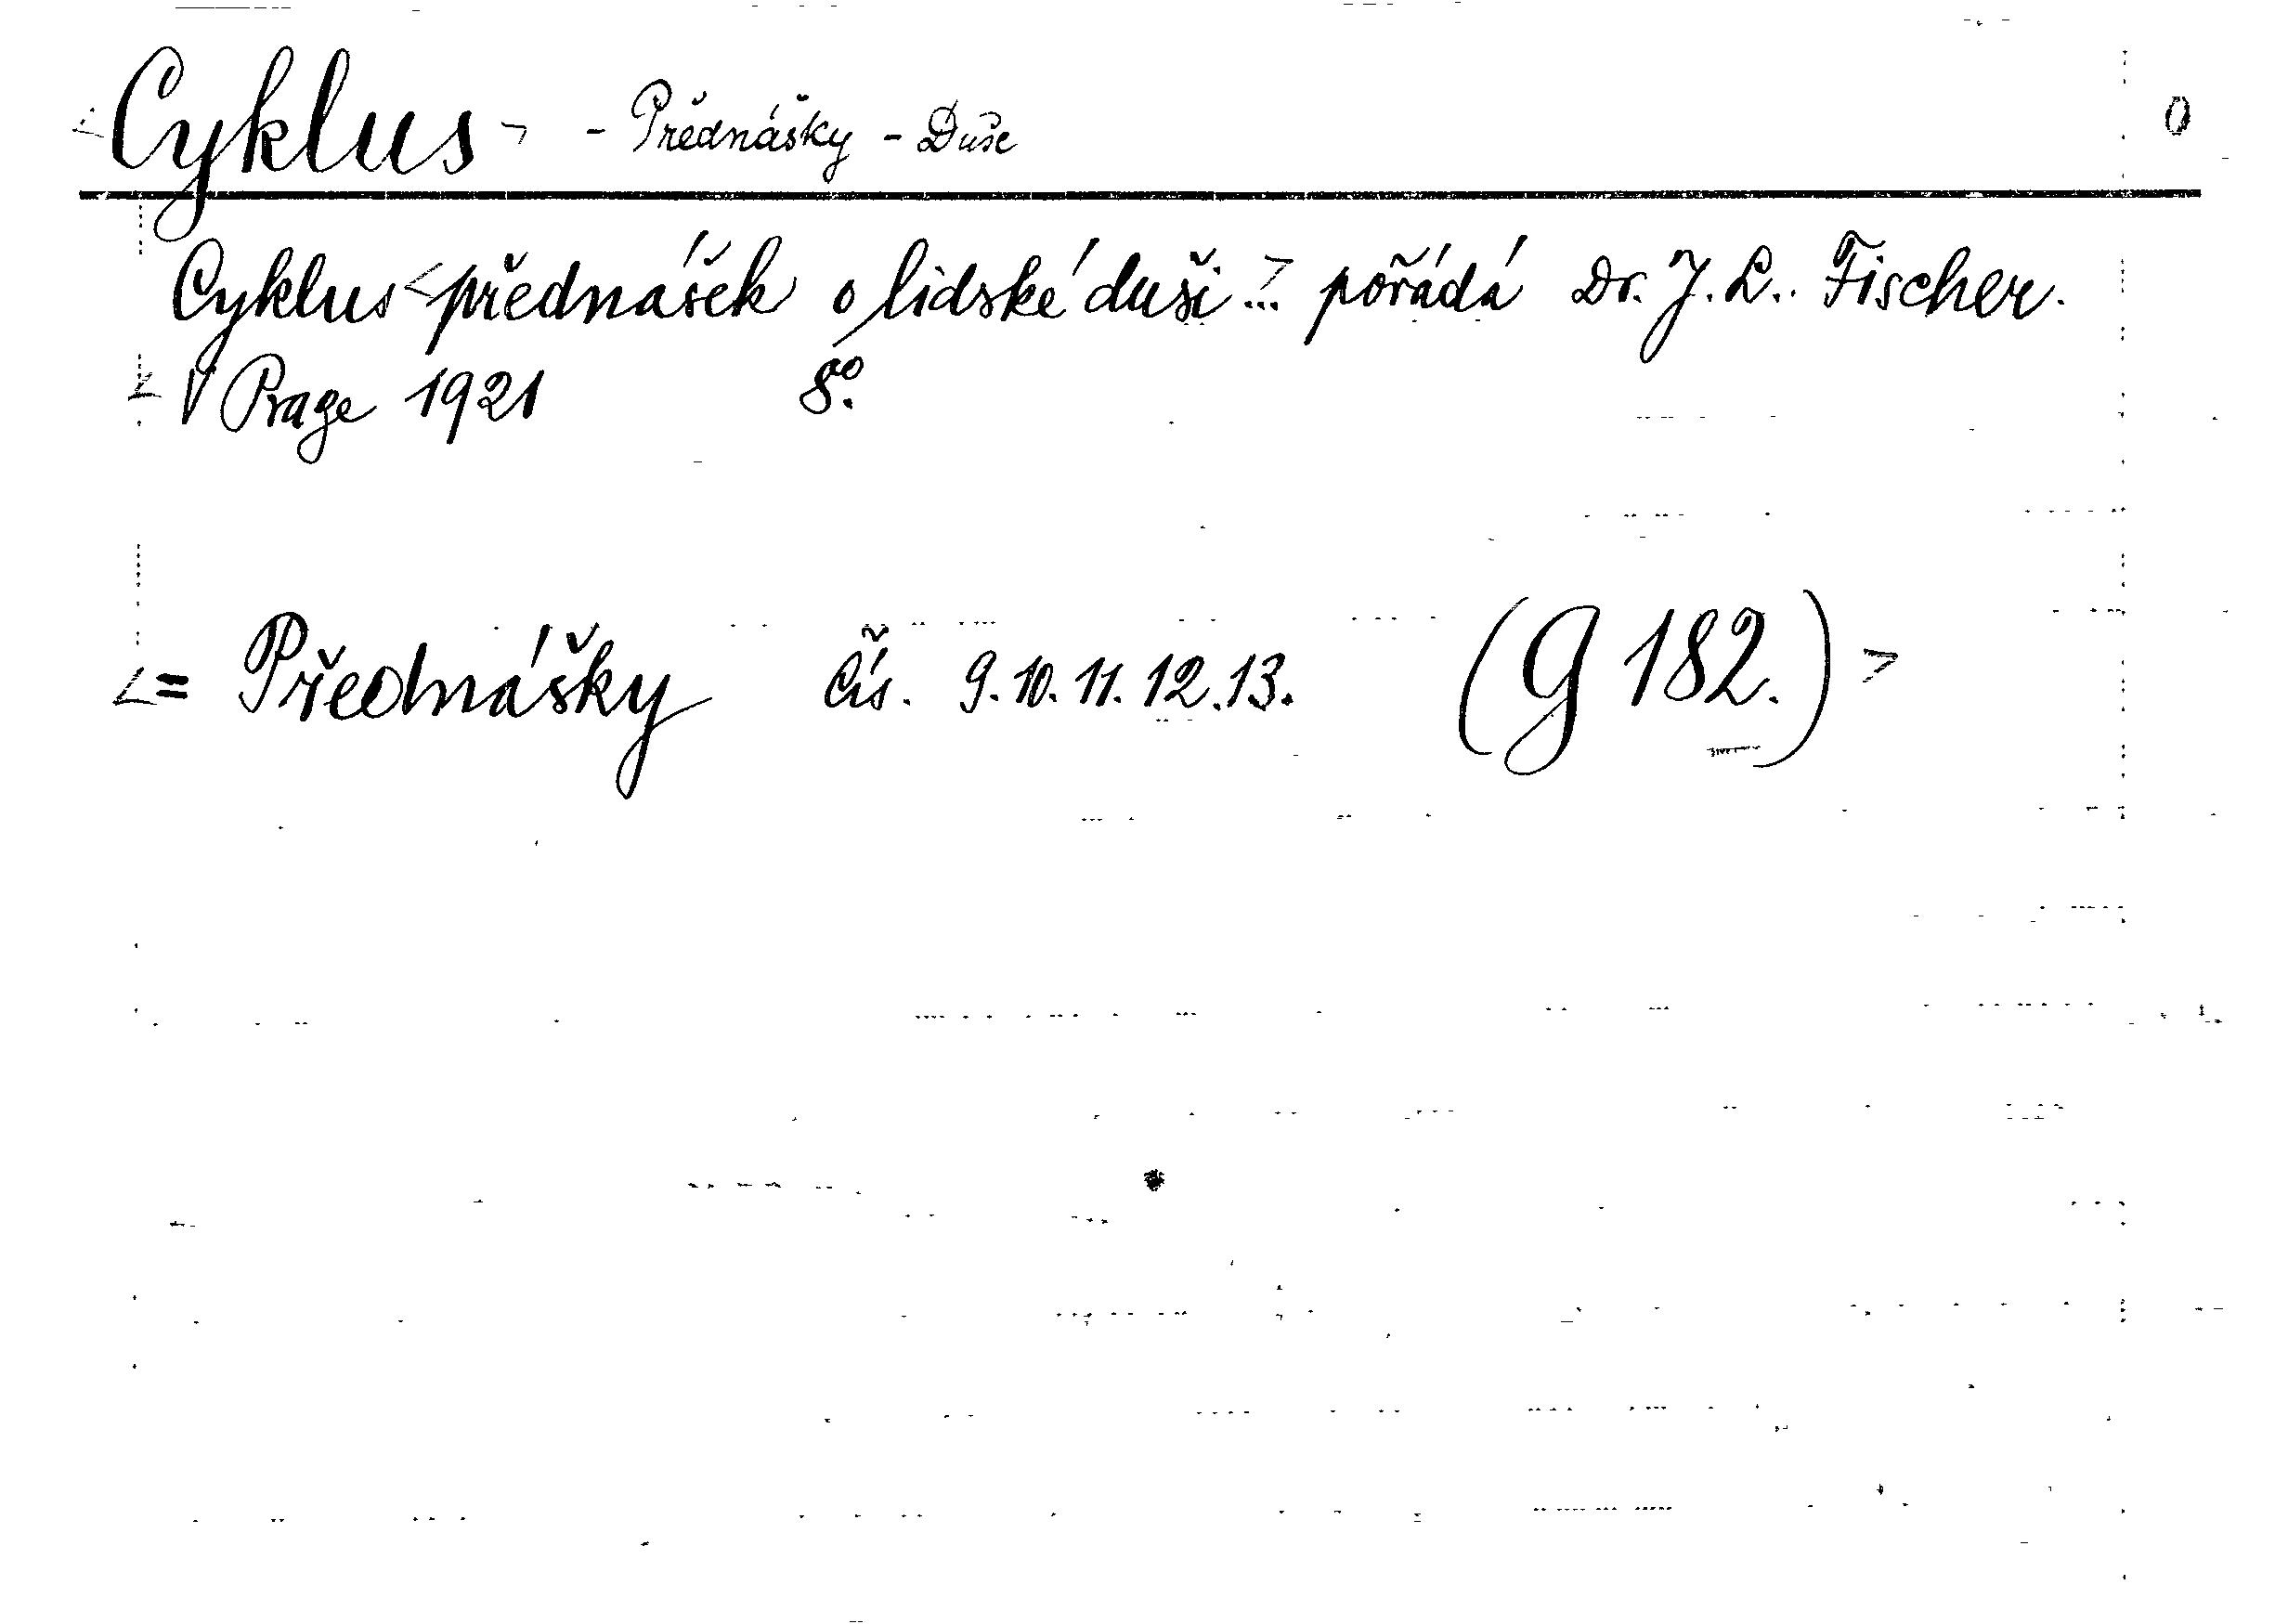 <Cyklus> - Přednášky - Duše 0
Cyklus <přednášek o lidské duši...> pořádá Dr. J. L. Fischer.
< V Praze 1921 8°.
<= Přednášky čís. 9. 10. 11. 12. 13. (G 182.)>